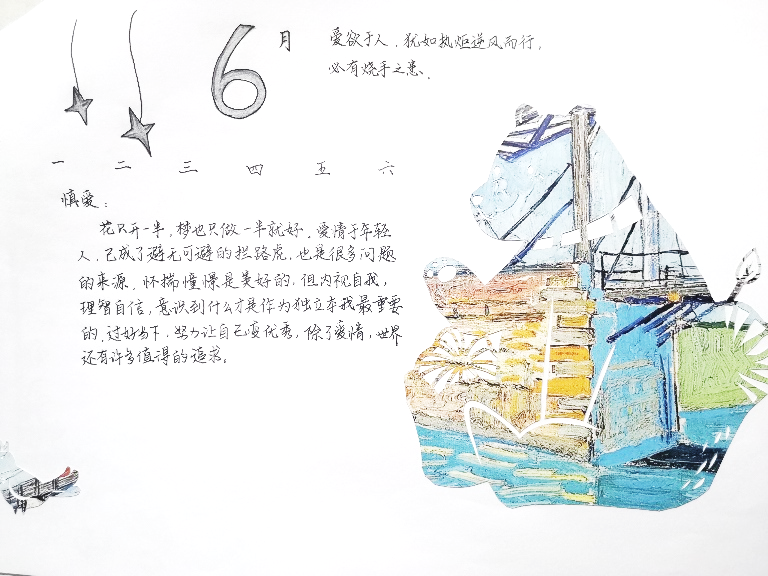 6月
爱欲于人，犹如执炬逆风而行，
必有烧手之患．
一 二 三 四 五 六
慎爱：
花只开一半，梦也只做一半就好，爱情于年轻
人，已成了避无可避的拦路虎，也是很多问题
的来源，怀揣憧憬是美好的，但内视自我，
理智自信，意识到什么才是作为独立本我最重要
的，过好当下，努力让自己变优秀，除了爱情，世界
还有许多值得的追求。